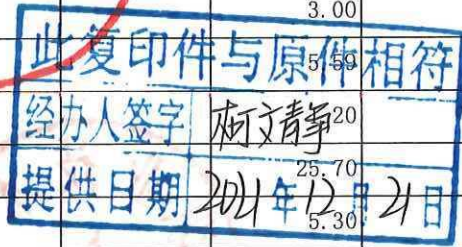 3.00
此复印件与原件相符
5.59
经办人签字 柯文静
20
25.70
提供日期 2021年12月21日
5.30